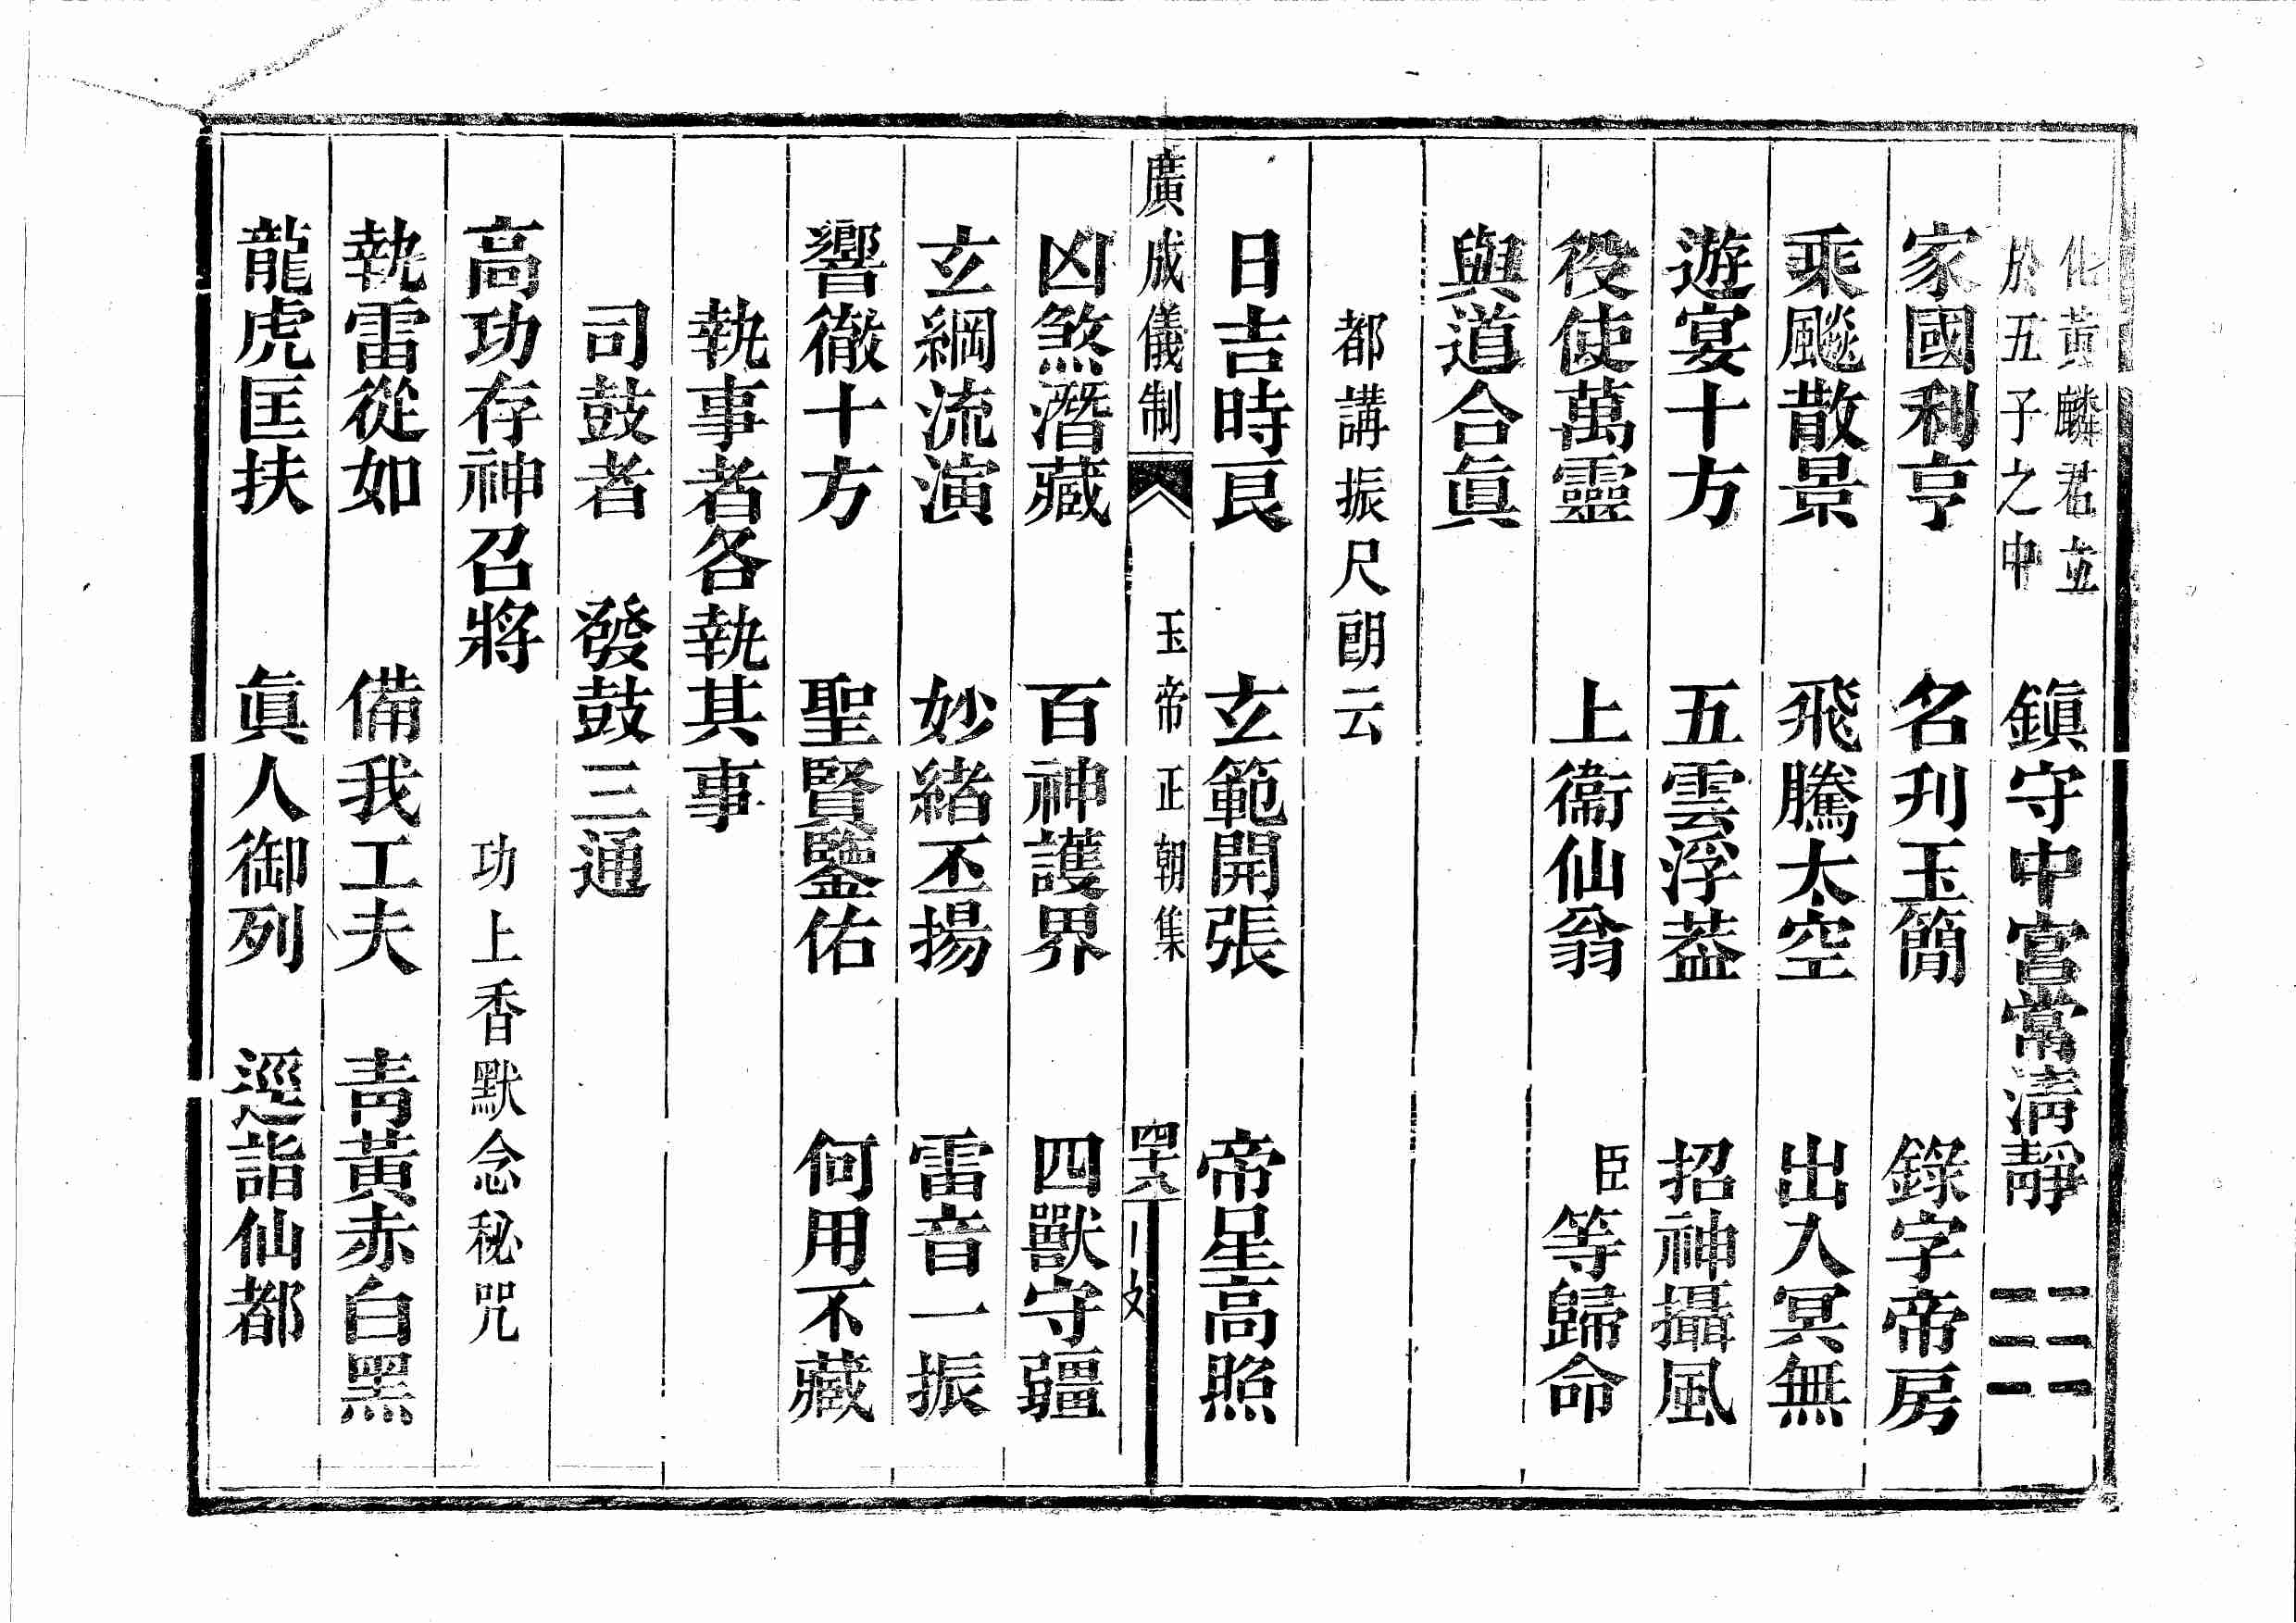 化黃麟君立
於五子之中
鎮守中宮常清靜 ☷
家國利亨　名刋玉簡　錄字帝房
乘飈散景　飛騰太空　出入冥無
遊宴十方　五雲浮葢　招神攝風
役使萬靈　上衞仙翁　臣等歸命
與道合眞
都講振尺朗云
日吉時良　玄範開張　帝星高照
廣成儀制　玉帝正朝集　四十六　文
凶煞潛藏　百神護界　四獸守疆
玄綱流演　妙緒丕揚　雷音一振
響徹十方　聖賢鑒佑　何用不藏
執事者各執其事
司鼓者　發鼓三通
高功存神召將　功上香默念秘咒
執雷從如　備我工夫　靑黃赤白黑
龍虎匡扶　眞人御列　逕詣仙都